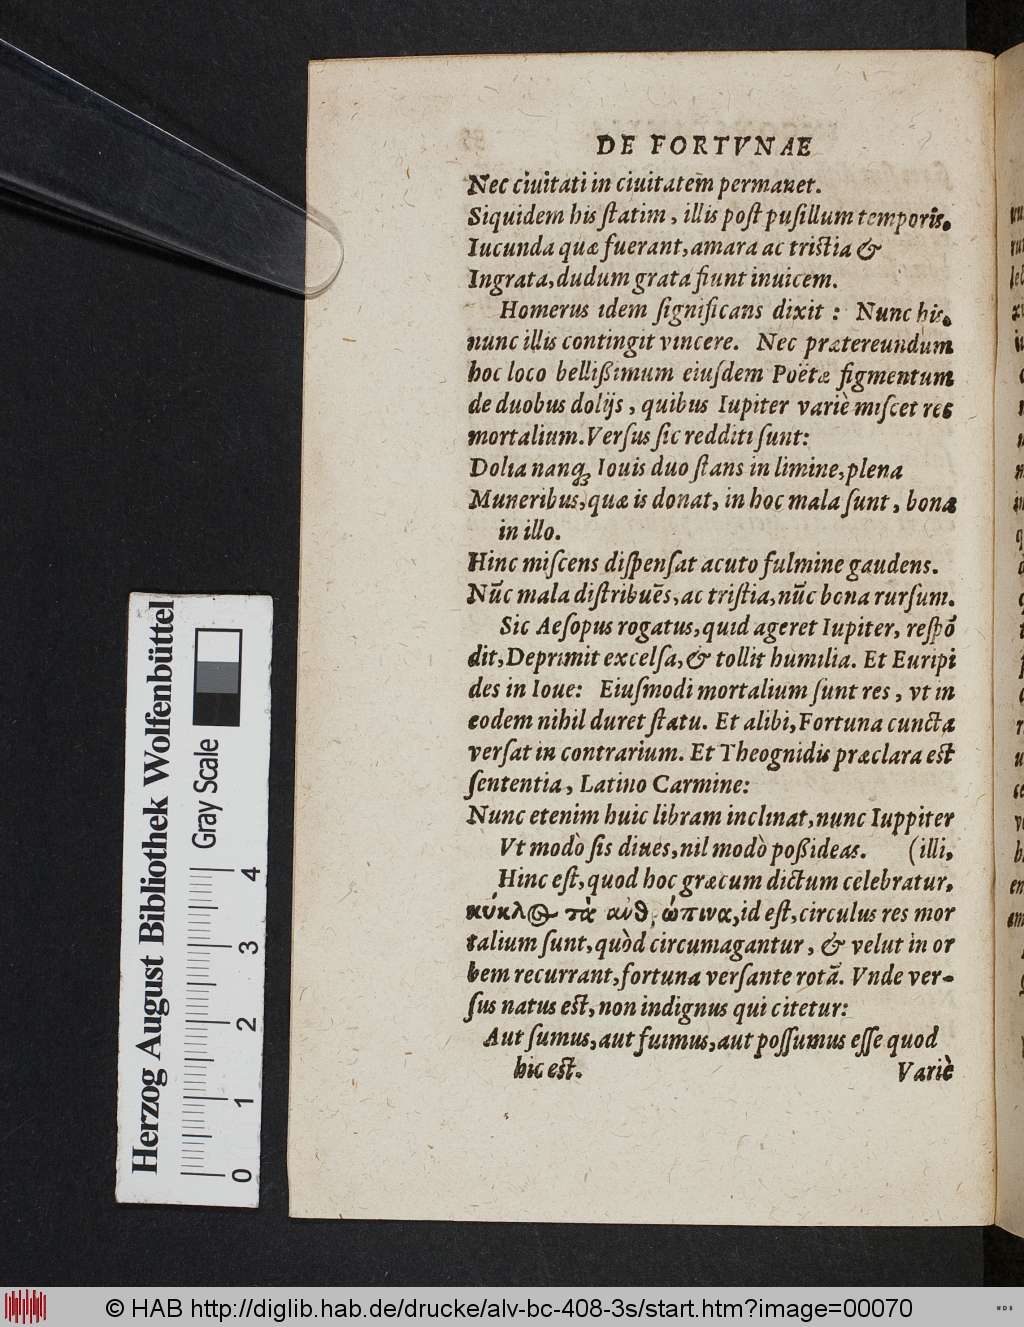 DE FORTVNAE
Nec ciuitati in ciuitatem permanet.
Siquidem his ſtatim, illis poſt puſillum temporis.
Iucunda quæ fuerant, amara ac triſtia &
Ingrata, dudum grata fiunt inuicem.
Homerus idem ſignificans dixit : Nunc his,
nunc illis contingit vincere. Nec prætereundum
hoc loco bellißimum eiuſdem Poëtæ figmentum
de duobus dolijs, quibus Iupiter variè miſcet res
mortalium. Verſus ſic redditi ſunt:
Dolia nanq; Iouis duo ſtans in limine, plena
Muneribus, quæ is donat, in hoc mala ſunt, bona
in illo.
Hinc miſcens diſpenſat acuto fulmine gaudens.
Nūc mala diſtribuēs, ac triſtia, nūc bona rurſum.
Sic Aeſopus rogatus, quid ageret Iupiter, reſpō
dit, Deprimit excelſa, & tollit humilia. Et Euripi
des in Ioue: Eiuſmodi mortalium ſunt res, vt in
eodem nihil duret ſtatu. Et alibi, Fortuna cuncta
verſat in contrarium. Et Theognidis præclara eſt
ſententia, Latino Carmine:
Nunc etenim huic libram inclinat, nunc Iuppiter
Vt modò ſis diues, nil modò poßideas. (illi,
Hinc eſt, quod hoc græcum dictum celebratur,
κύκλος τὰ ἀνθρώπινα, id eſt, circulus res mor
talium ſunt, quòd circumagantur, & velut in or
bem recurrant, fortuna verſante rotā. Vnde ver-
ſus natus eſt, non indignus qui citetur:
Aut ſumus, aut fuimus, aut poſſumus eſſe quod
hic eſt.
Variè
Herzog August Bibliothek Wolfenbüttel
Gray Scale
0 1 2 3 4
© HAB http://diglib.hab.de/drucke/alv-bc-408-3s/start.htm?image=00070